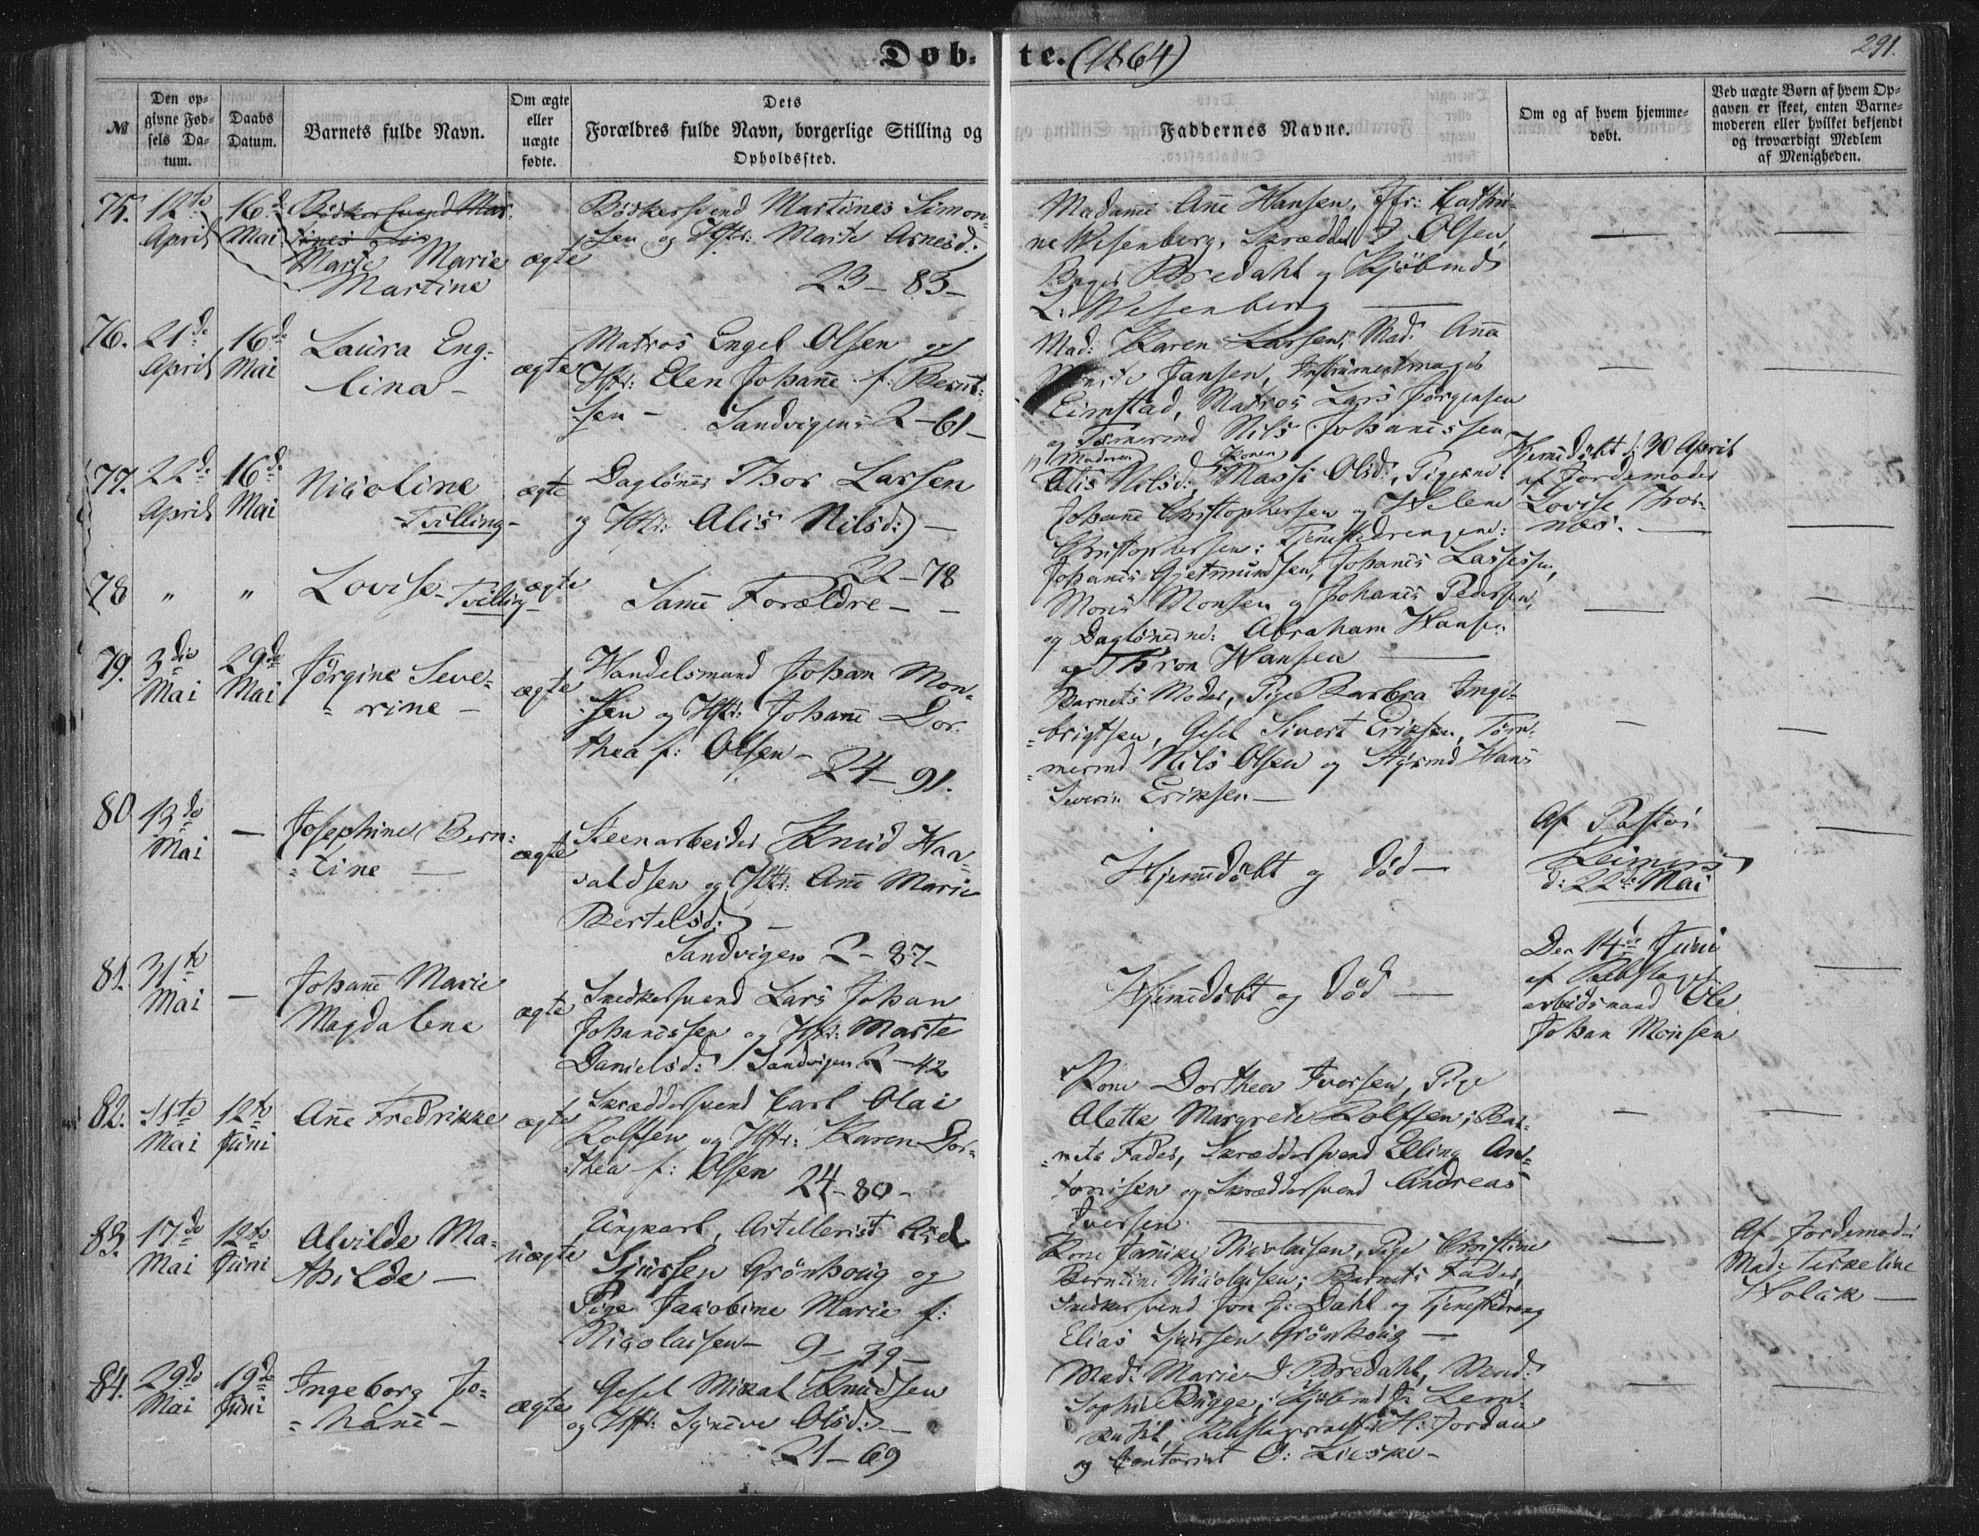 Døb-te. (1864)
291.
№
Den opgivne Fødsels Datum.
Daabs Datum.
Barnets fulde Navn.
Om ægte eller uægte fødte.
Dets Forældres fulde Navn, borgerlige Stilling og Opholdssted.
Faddernes Navne.
Om og af hvem hjemmedøbt.
Ved uægte Børn af hvem Opgaven er skeet, enten Barnemoderen eller hvilket bekjendt og troværdigt Medlem af Menigheden.
75. 12te April
16de Mai
Marie
Marie
Martine
ægte
Bødkersvend Martines Simon-
sen og Hstr: Marte Arnesd:
23-83-
Madame Ane Hansen, Jfr: Cathri-
ne Wesenberg, Skrædder J Olsen,
Bager Bredahl og Kjøbmd
L. Wesenberg
76. 21de April
16de Mai
Laura Eng-
lina-
ægte
Matros Engel Olsen og
Hstr: Elen Johanne f: Bernt-
sen - Sandvigen: 2-61-
Mad: Karen Larsen, Mad: Anna
Jansen, Instrumentmager
Eimstad, Matros Lars Jørgensen
og Tømermd Nils Johannessen
77. 22de April
16de Mai
Nicoline
-Tvilling-
ægte
Dagløner Thor Larsen
og Hstr: Alis Nilsd: -
22-78
Moderen
Konen
Alis Nilsd:, Massi Olsd:, Pigerne:
Johanne Christophersen og Helene
Christophersen; Tjenestedrengene:
Johanes Gjetmundsen, Johanes Lassesen,
Mons Monsen og Johanes Pedersen,
og Dagløner ne: Abraham Hansen
og Thron Hansen
Hjemedøbt d: 30 April
af Jordemoder
Lovise Thor-
næs. -
78 " "
Lovise - Tvilling-
ægte
Same Forældre - -
79. 3die Mai
29de Mai
Jørgine Seve-
rine -
ægte
Handelsmand Johan Mon-
sen og Hstr: Johane Dor-
thea f: Olsen -
24-91.
Barnets Moder, Pige Barbra Ingi-
brigtsen, Gesel Sivert Eriksen, Tøm-
mermd Nils Olsen og Styrmd Hans
Severin Eriksen -
80 13de Mai
-
Josephine Bern-
tine -
ægte
Steenarbeider Knud Haa-
valdsen og Hstr: Ane Marie
Bertelsd: -
Sandvigen 2-87-
Hjemedøbt og død -
Af Pastor
Reimers
d: 22de Mai
81. 31te Mai
-
Johane Marie
Magdalene
ægte
Snedkersvend Lars Johan
Johanessen og Hstr: Marte
Danielsd: Sandvigen 2-42
Hjemedøbt og død -
Den 14de Juni
af Rebslager
arbeidsmand Ole
Johan Monsen
82. 11te Mai
12te Juni
Ane Fredrikke
ægte
Skræddersvend Carl Olai
Rolfsen og Hstr: Karen Dor-
thea f: Olsen
24-80-
Kone Dorthea Iversen, Pige
Alette Margrete Rolfsen; Bar-
nets Fader, Skræddersvend Elling An-
tonisen og Skræddersvend Andreas
Iversen
83. 17de Mai
12te Juni
Alvilde Ma-
thilde -
uægte
Ungkarl, Artellerist Axel
Sjursen Grønhoug og
Pige Jacobine Marie f:
Nicolaisen -
9-39-
Kone Janike Nicolaisen, Pige Christine
Berntine Nicolaisen; Barnets Fader,
Snedkersvend Jon J: Dahl og Tjenestedreng
Elias Sjursen Grønhoug -
Af Jordemod:
Mad: Terkeline
Holck -
84. 29de Mai
19de Juni
Ingeborg Jo-
hane -
ægte
Gesel Mikal Knudsen
og Hstr: Synneve Olsd: -
21-69
Mad: Marie J Bredahl, Mad:
Sophie Bugge; Kjøbmd Fr: Lem-
kuhl, H: Jordan
og Contorist O: Lieske -